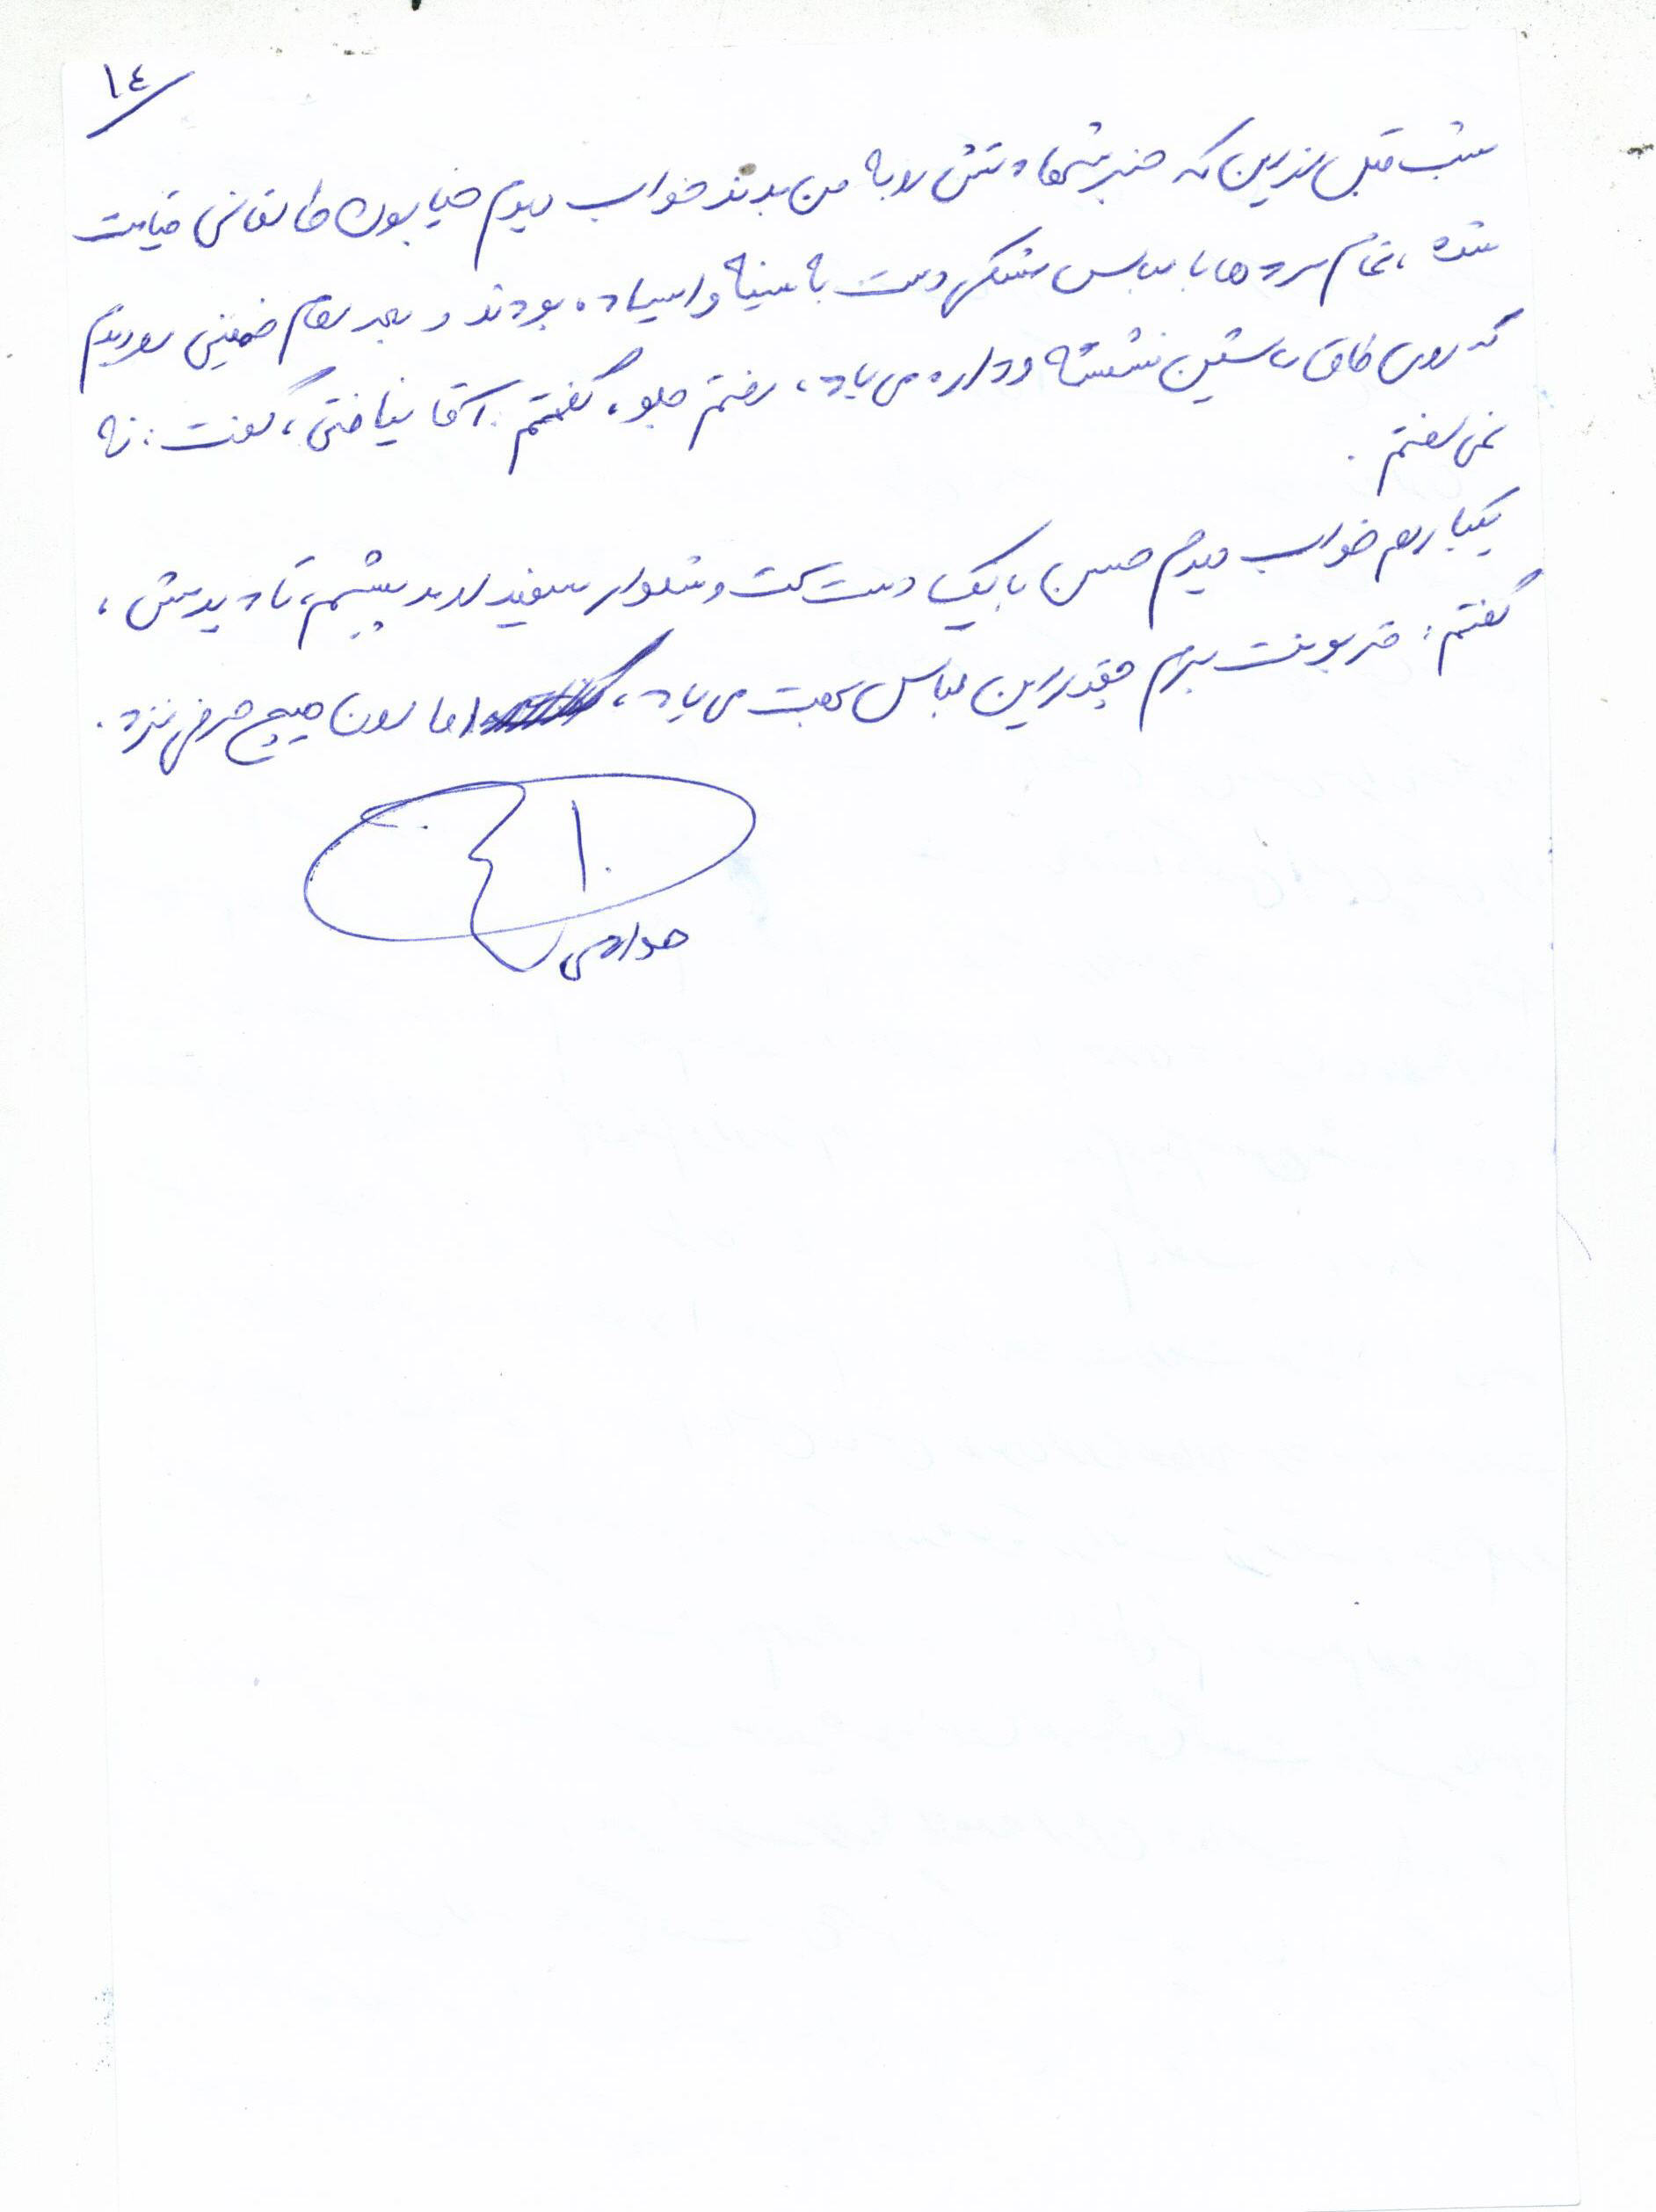 ١٤
شب قبل از این که خبر شهادتش رو به من بدند خواب دیدم خیابون طالقانی قیامت
شده، تمام مردها با لباس مشکی دست به سینه وایساده بودند و بعد امام خمینی رو دیدم
که روی طاق ماشین نشسته و داره می‌یاد، رفتم جلو، گفتم: آقا نیافتی، گفت: نه
نمی‌افتم.
یکبار هم خواب دیدم حسن با یک دست کت و شلوار سفید اومد پیشم، تا دیدمش،
گفتم: قربونت برم چقدر این لباس بهت می‌یاد، اما اون هیچ حرفی نزد.